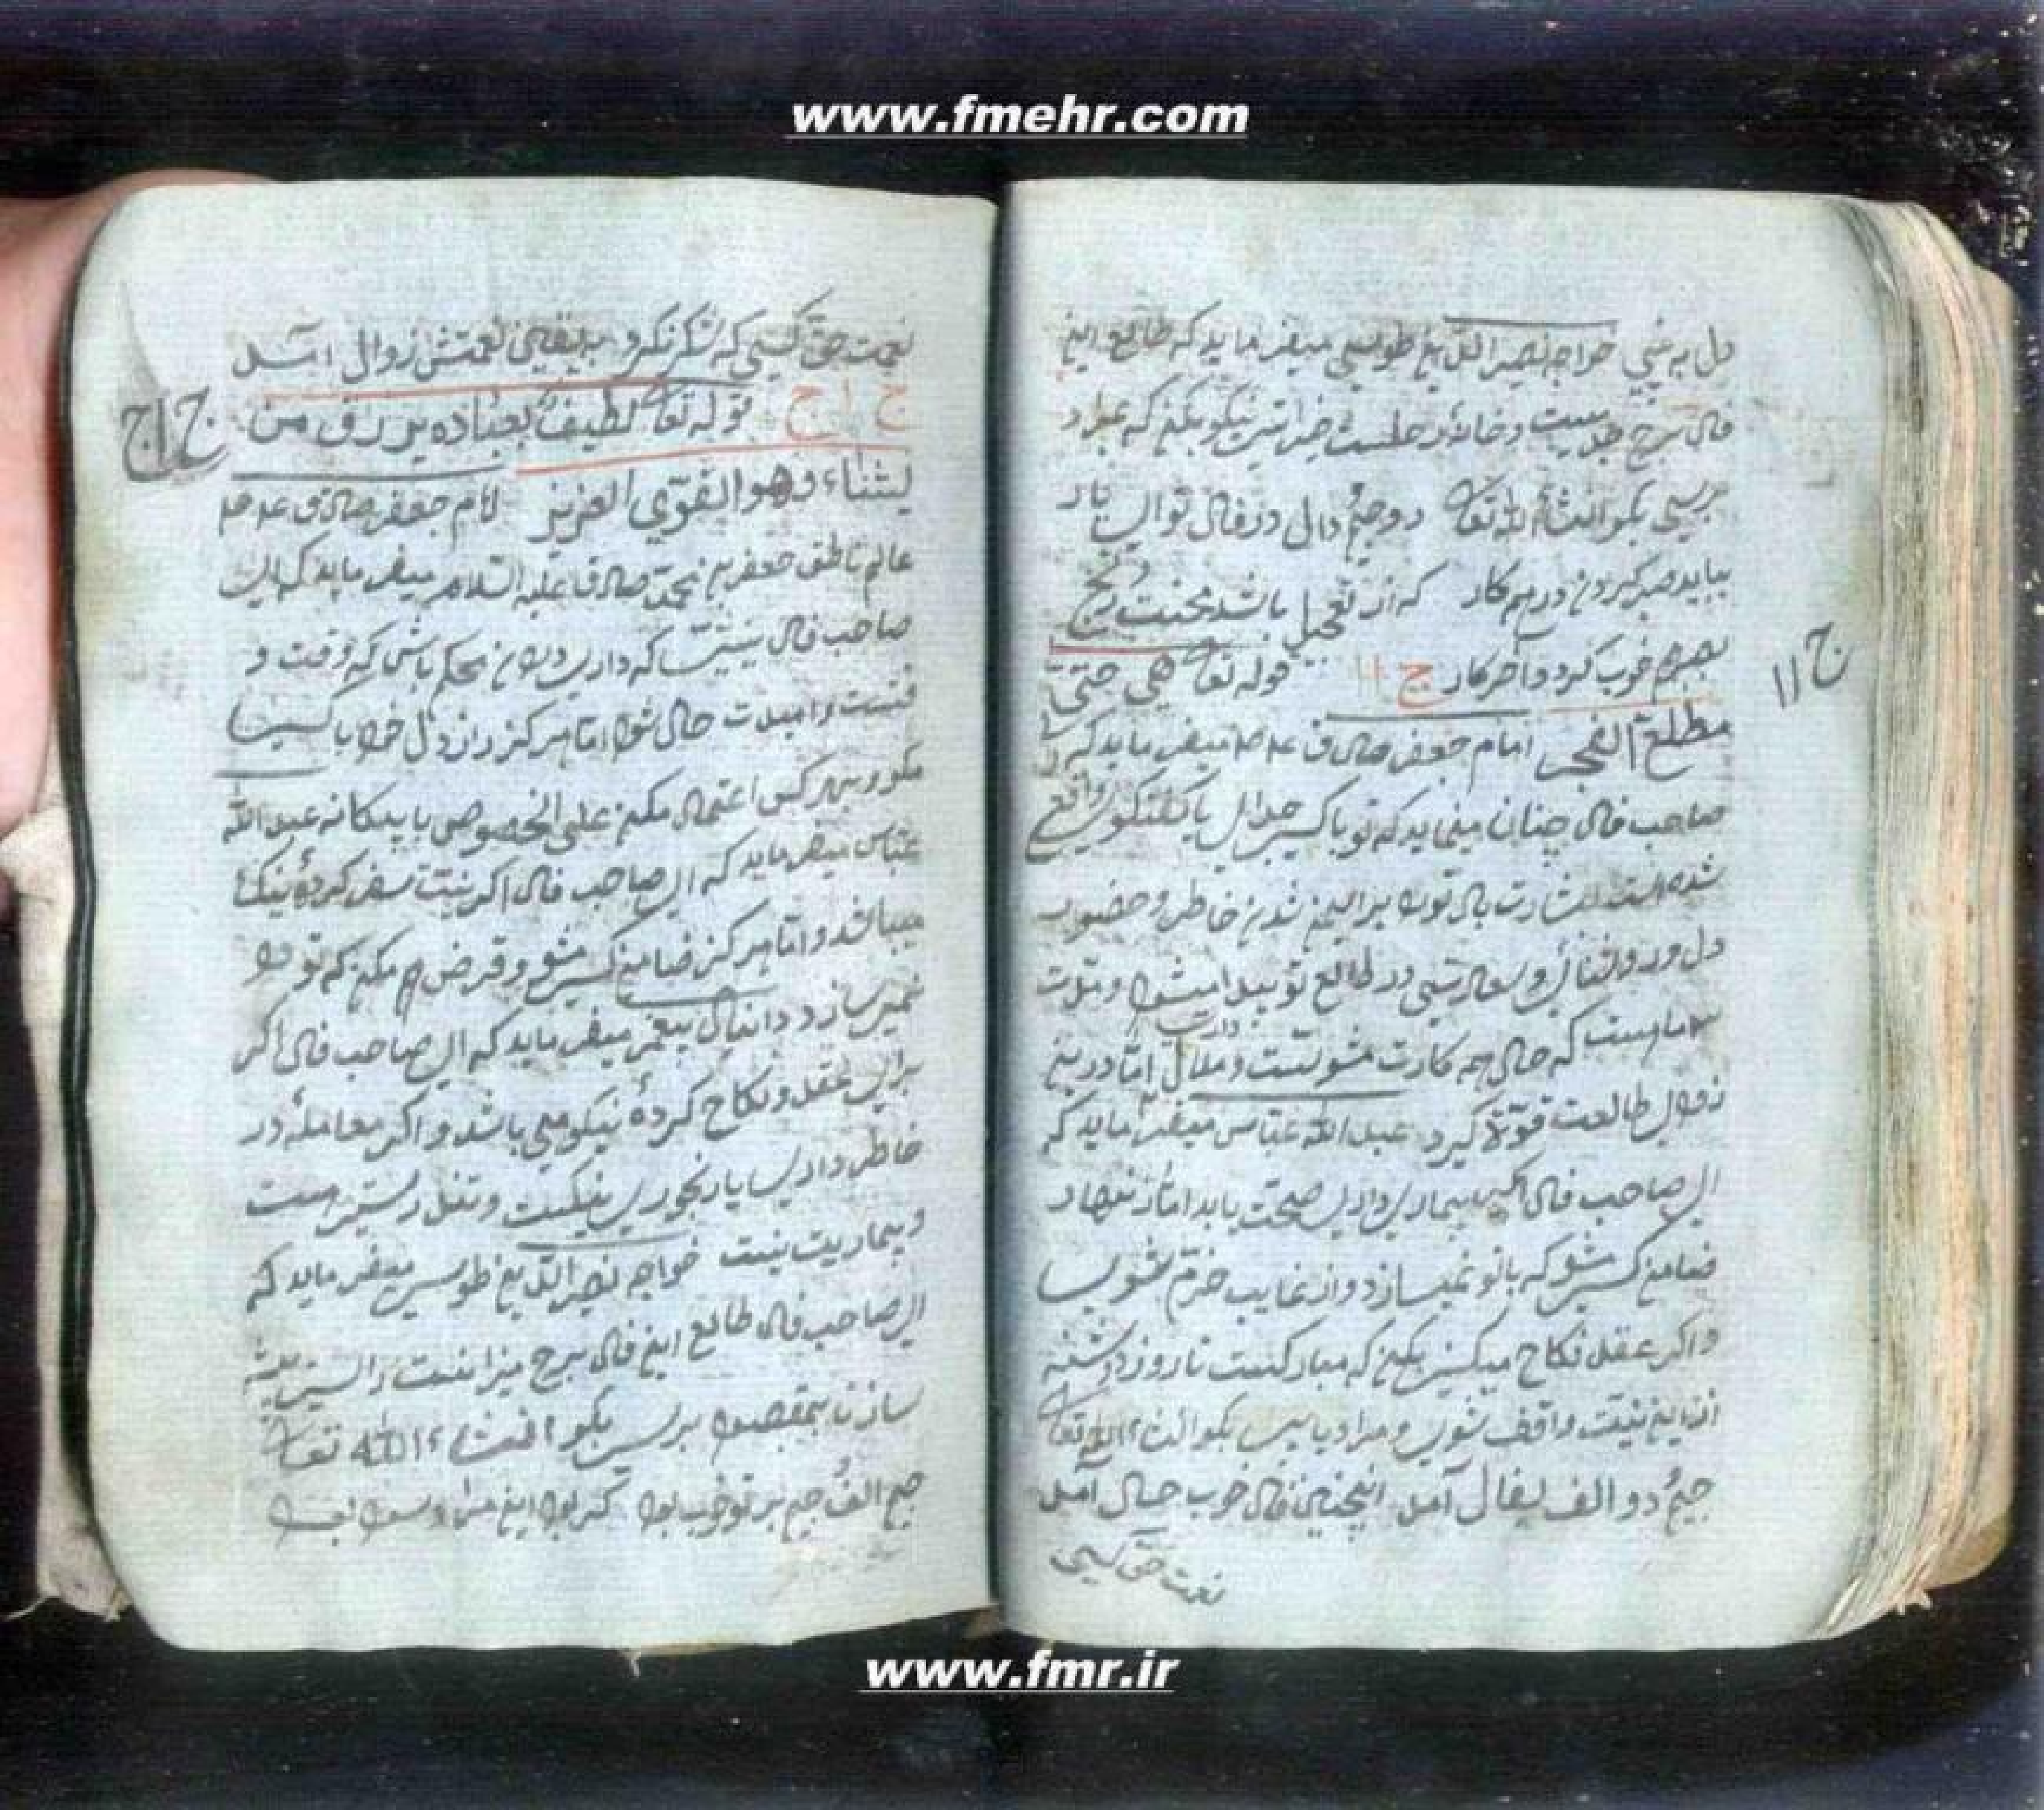 www.fmehr.com
دل به بینی خواجه نصیر الدین طوسی میفرماید که طالع این
فال برج جدیست و خانهٔ نیکو بکن که بمراد
برسی بگو انشاء الله تعالی دو جیم دال در فال تو ای یار
بباید صبر کردن در همه کار که از تعجیل باشد محنت و رنج
بصبرهم خوب گردد آخر کار ج ۱۱ قوله تعالی هی حتی
ج ۱۱
مطلع الفجر امام جعفر صادق میفرماید که ای
صاحب فال چنان مینماید که تو با کسی جدال یا گفتگوی واقع
شده است بشارت باد تو را برایمن شدن خاطر و حضور
دل و روشنائی و سعادتی در طالع تو پیدا میشود و مدت
ماهست که حال چه کارت مشوشست و ملال داری اما درین
زودی طالعت قوة گیرد عبد الله عباس میفرماید که
ای صاحب فال اگر بیماری داری صحت یابد اما زنهار
ضامن کسی مشو که با تو نمیسازد و از غایب خرم شوی
و اگر عقد نکاح میکنی بکن که مبارکست تا روز دوشنبه
ازین نیت واقف شوی و مراد یابی بگو انشاء الله تعالی
جیم دو الف بفال آمد اینچنین فال خوب حال آمد
نعمت حق کسی
نعمت حق کسی که شکر نکرد بیقین نعمتش زوال آمد
ج ا ج قوله تعالی لطیف بعباده یرزق من
ج ا ج
یشاء و هو القوی العزیز امام جعفر صادق
عالم ناطق جعفر بن محمد صادق علیه السلام میفرماید که ای
صاحب فال نیتی که داری در آن محکم باش که وقت و
حال شود اما هرگز راز دل خود با کسی
مگو و بهر کس اعتماد مکن علی الخصوص با بیگانه عبد الله
عباس میفرماید که ای صاحب فال اگر نیت سفر کردهٔ نیک
میباشد و اما هرگز ضامن کسی مشو و قرض هم مکن که تو را
نمیسازد دانیال پیغمبر میفرماید که ای صاحب فال اگر
برای عقد و نکاح کردهٔ نیکو می باشد و اگر معاملهٔ در
خاطر داری یا رنجوری نیکست و تندرستی هست
و بیماریت نیست خواجه نصیر الدین طوسی میفرماید که
ای صاحب فال طالع این فال برج میزانست راستی پیشه
ساز تا بمقصود برسی بگو انشاء الله تعالی
جیم الف جیم بر تو خوب بود که بود این مراد
www.fmr.ir